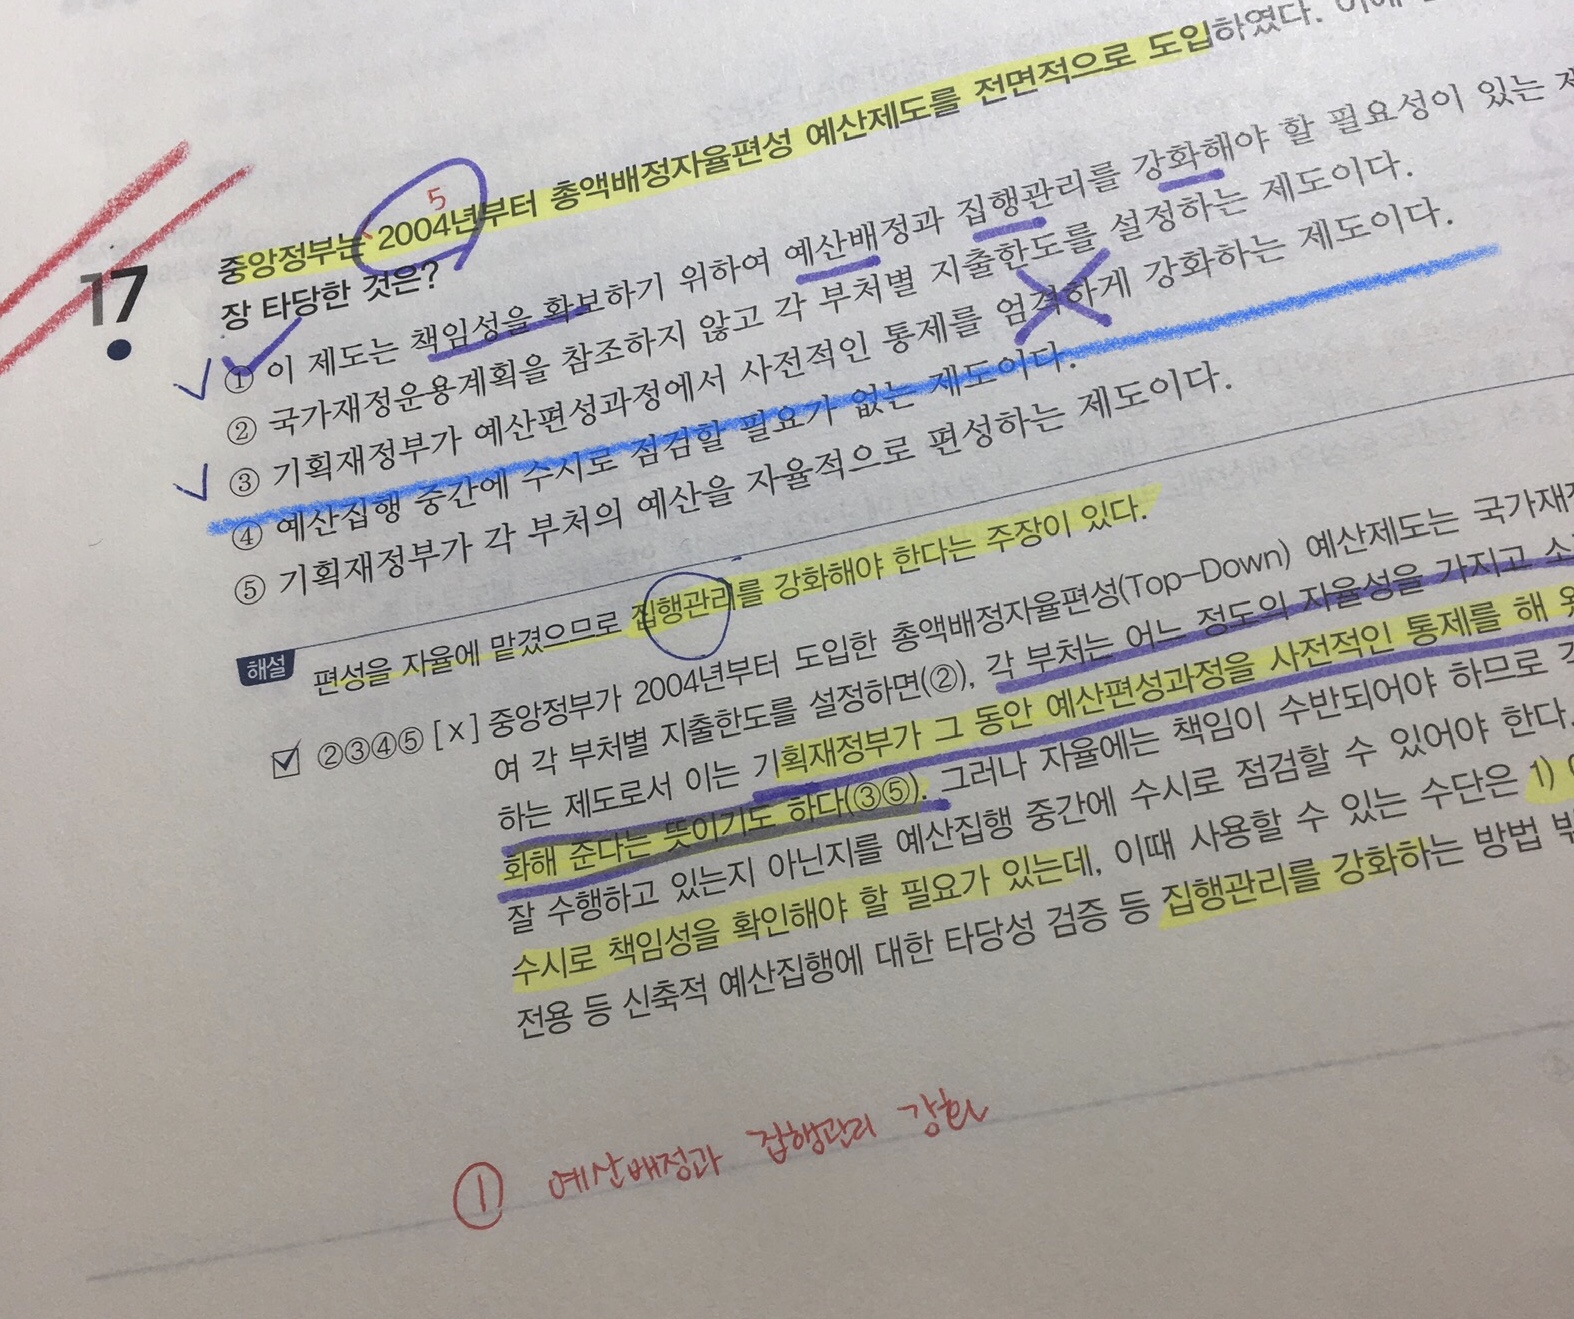 17
중앙정부는 2004년부터 총액배정자율편성 예산제도를 전면적으로 도입하였다. 이에
5
장 타당한 것은?
① 이 제도는 책임성을 확보하기 위하여 예산배정과 집행관리를 강화해야 할 필요성이 있는 제
② 국가재정운용계획을 참조하지 않고 각 부처별 지출한도를 설정하는 제도이다.
③ 기획재정부가 예산편성과정에서 사전적인 통제를 엄격하게 강화하는 제도이다.
④ 예산집행 중간에 수시로 점검할 필요가 없는 제도이다.
⑤ 기획재정부가 각 부처의 예산을 자율적으로 편성하는 제도이다.
해설 편성을 자율에 맡겼으므로 집행관리를 강화해야 한다는 주장이 있다.
②③④⑤ [X] 중앙정부가 2004년부터 도입한 총액배정자율편성(Top-Down) 예산제도는 국가재정
여 각 부처별 지출한도를 설정하면(②), 각 부처는 어느 정도의 자율성을 가지고 소
하는 제도로서 이는 기획재정부가 그 동안 예산편성과정을 사전적인 통제를 해 왔
화해 준다는 뜻이기도 하다(③⑤). 그러나 자율에는 책임이 수반되어야 하므로 각
잘 수행하고 있는지 아닌지를 예산집행 중간에 수시로 점검할 수 있어야 한다.
수시로 책임성을 확인해야 할 필요가 있는데, 이때 사용할 수 있는 수단은 1)
전용 등 신축적 예산집행에 대한 타당성 검증 등 집행관리를 강화하는 방법 밖
① 예산배정과 집행관리 강화